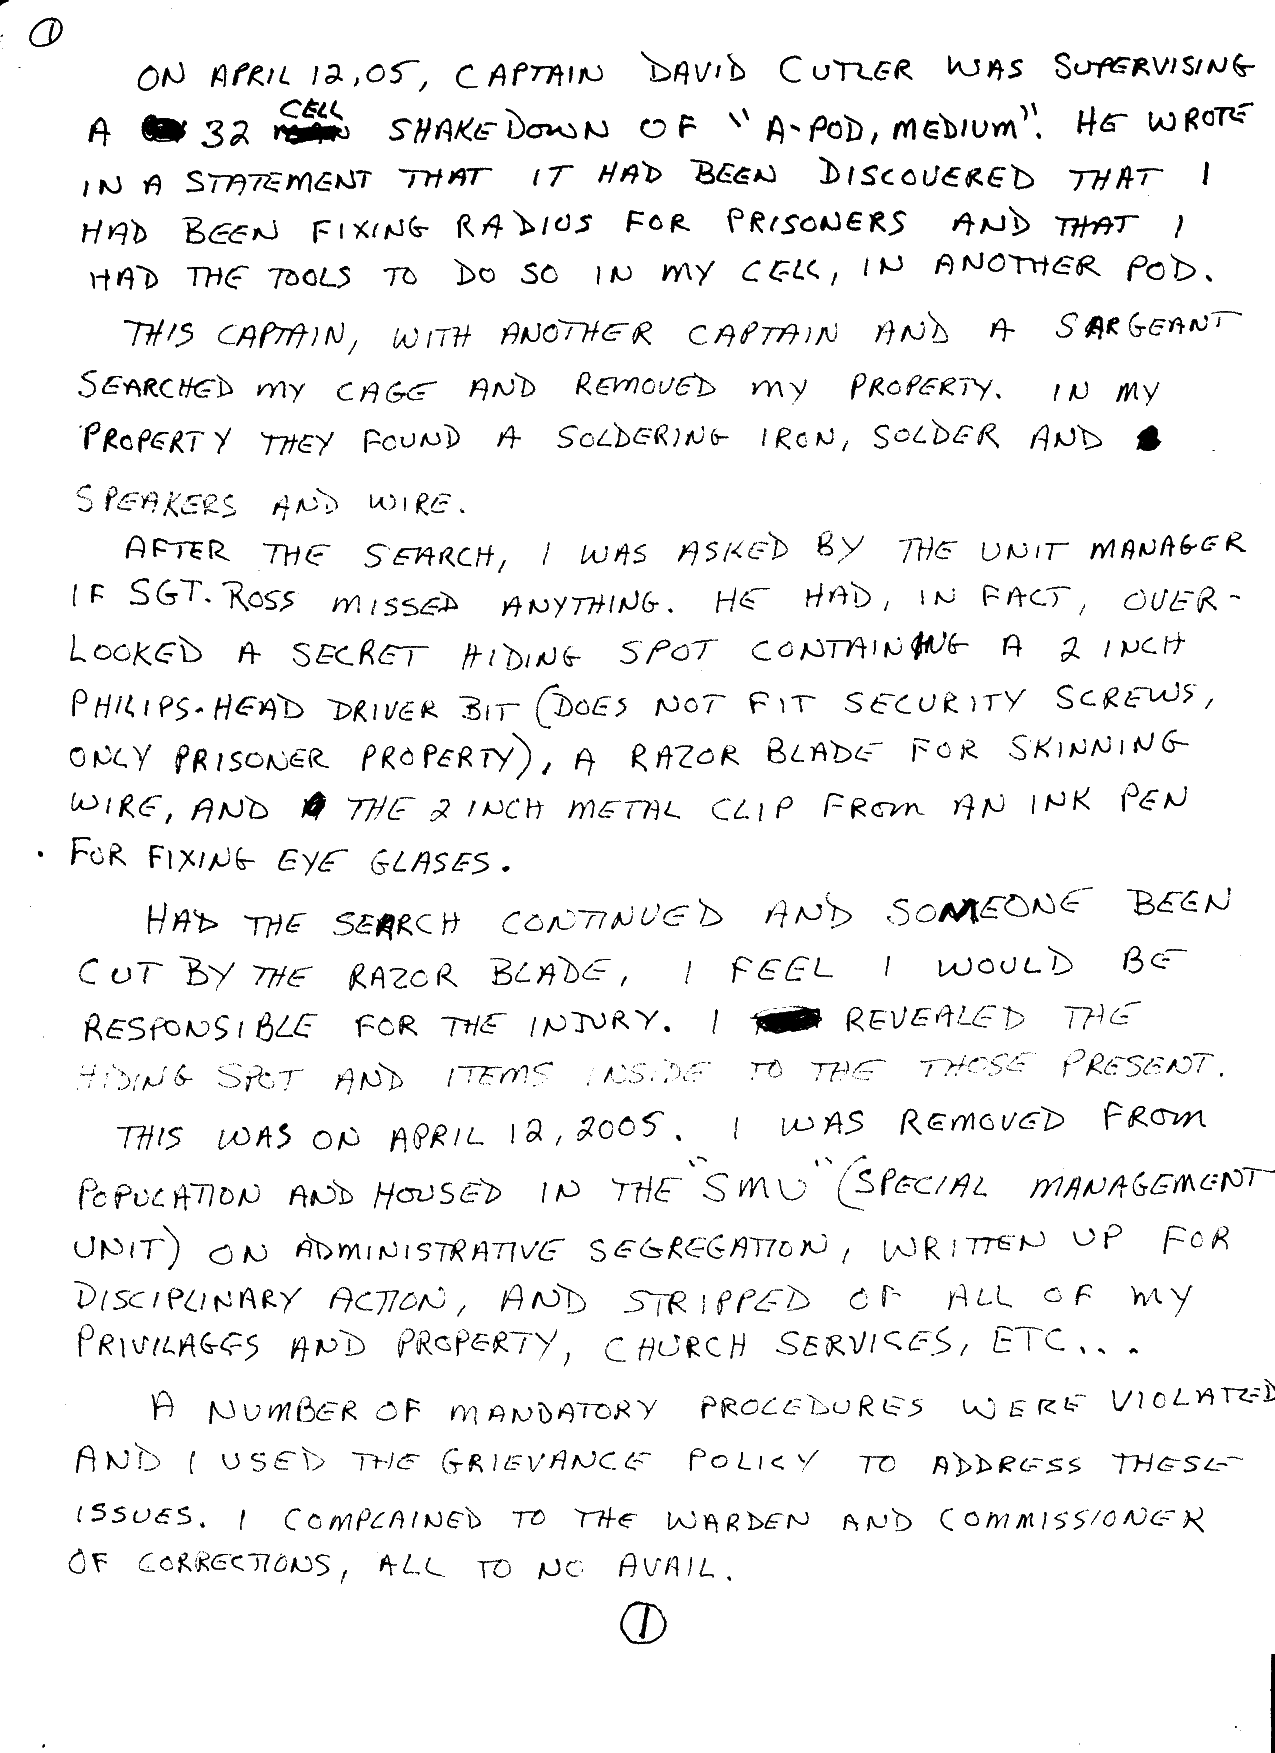 ①
ON APRIL 12,05, CAPTAIN DAVID CUTLER WAS SUPERVISING
CELL
A 32 SHAKEDOWN OF "A-POD, MEDIUM". HE WROTE
IN A STATEMENT THAT IT HAD BEEN DISCOVERED THAT I
HAD BEEN FIXING RADIOS FOR PRISONERS AND THAT I
HAD THE TOOLS TO DO SO IN MY CELL, IN ANOTHER POD.
THIS CAPTAIN, WITH ANOTHER CAPTAIN AND A SARGEANT
SEARCHED MY CAGE AND REMOVED MY PROPERTY. IN MY
PROPERTY THEY FOUND A SOLDERING IRON, SOLDER AND
SPEAKERS AND WIRE.
AFTER THE SEARCH, I WAS ASKED BY THE UNIT MANAGER
IF SGT. ROSS MISSED ANYTHING. HE HAD, IN FACT, OVER-
LOOKED A SECRET HIDING SPOT CONTAINING A 2 INCH
PHILIPS-HEAD DRIVER BIT (DOES NOT FIT SECURITY SCREWS,
ONLY PRISONER PROPERTY), A RAZOR BLADE FOR SKINNING
WIRE, AND THE 2 INCH METAL CLIP FROM AN INK PEN
FOR FIXING EYE GLASES.
HAD THE SEARCH CONTINUED AND SOMEONE BEEN
CUT BY THE RAZOR BLADE, I FEEL I WOULD BE
RESPONSIBLE FOR THE INJURY. I REVEALED THE
HIDING SPOT AND ITEMS INSIDE TO THE THOSE PRESENT.
THIS WAS ON APRIL 12, 2005. I WAS REMOVED FROM
POPULATION AND HOUSED IN THE "SMU" (SPECIAL MANAGEMENT
UNIT) ON ADMINISTRATIVE SEGREGATION, WRITTEN UP FOR
DISCIPLINARY ACTION, AND STRIPPED OF ALL OF MY
PRIVILAGES AND PROPERTY, CHURCH SERVICES, ETC...
A NUMBER OF MANDATORY PROCEDURES WERE VIOLATED
AND I USED THE GRIEVANCE POLICY TO ADDRESS THESE
ISSUES. I COMPLAINED TO THE WARDEN AND COMMISSIONER
OF CORRECTIONS, ALL TO NO AVAIL.
①